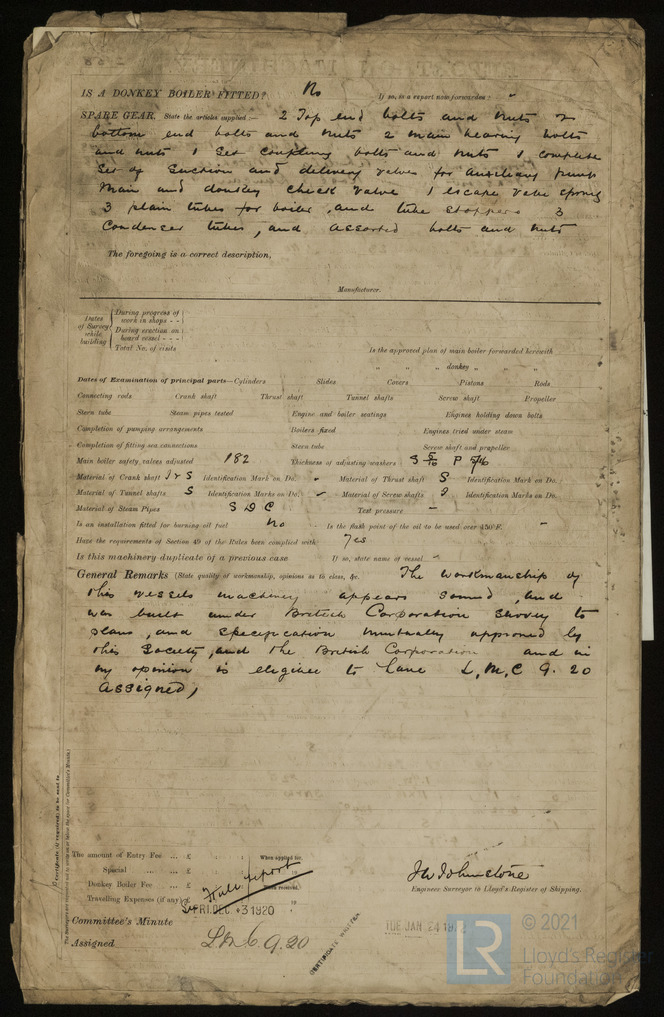 IS A DONKEY BOILER FITTED? No If so, is a report now forwarded? "
SPARE GEAR. State the articles supplied:— 2 Top end bolts and nuts 2
bottom end bolts and nuts 2 main bearing bolts
and nuts 1 Set coupling bolts and nuts 1 complete
Set of Suction and delivery valves for auxiliary pumps
Main and donkey check valve 1 escape valve spring
3 plain tubes for boiler, and tube stoppers 3
Condenser tubes, and assorted bolts and nuts
The foregoing is a correct description,
Manufacturer.
Dates of Survey while building
During progress of work in shops - -
During erection on board vessel - - -
Total No. of visits
Is the approved plan of main boiler forwarded herewith
" " " donkey " "
Dates of Examination of principal parts—Cylinders Slides Covers Pistons Rods
Connecting rods Crank shaft Thrust shaft Tunnel shafts Screw shaft Propeller
Stern tube Steam pipes tested Engine and boiler seatings Engines holding down bolts
Completion of pumping arrangements Boilers fixed Engines tried under steam
Completion of fitting sea connections Stern tube Screw shaft and propeller
Main boiler safety valves adjusted 182 Thickness of adjusting washers S P
Material of Crank shaft I & S Identification Mark on Do. Material of Thrust shaft S Identification Mark on Do.
Material of Tunnel shafts S Identification Marks on Do. Material of Screw shafts Identification Marks on Do.
Material of Steam Pipes S D C Test pressure –
Is an installation fitted for burning oil fuel No Is the flash point of the oil to be used over 150°F. "
Have the requirements of Section 49 of the Rules been complied with Yes
Is this machinery duplicate of a previous case If so, state name of vessel "
General Remarks (State quality of workmanship, opinions as to class, &c. The workmanship of
this vessels machinery appears sound, and
was built under British Corporation survey to
plans, and specification mutually approved by
this Society, and the British Corporation and in
my opinion is eligible to have L.M.C 9.20
assigned,
The amount of Entry Fee ... £ : : When applied for,
Special ... ... £ : : 19
Donkey Boiler Fee ... £ : : When received,
Travelling Expenses (if any) £ : : 19
Hull report
FRI. DEC. 3 1920
J W Johnstone
Engineer Surveyor to Lloyd's Register of Shipping.
Committee's Minute
TUE JAN. 24
Assigned 9.20
CERTIFICATE WRITTEN
LR
© 2021
Lloyd's Register
Foundation